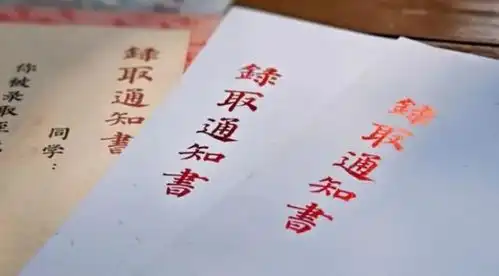 錄取通知書
同学：
你被录取至
錄取通知書
錄取通知書